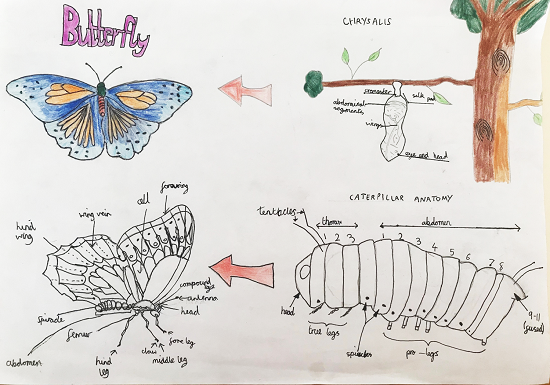 Butterfly
CHRYSALIS
cremaster
silk pad
abdominal
segments
wings
eyes and head
CATERPILLAR ANATOMY
tentacles
thorax
abdomen
1 2 3
1 2 3 4 5 6 7 8
9-11
(fused)
head
true legs
spiracles
pro-legs
cell
forewing
wing vein
hind
wing
compound
antenna
head
spiracle
femur
fore leg
claw
middle leg
hind
leg
abdomen